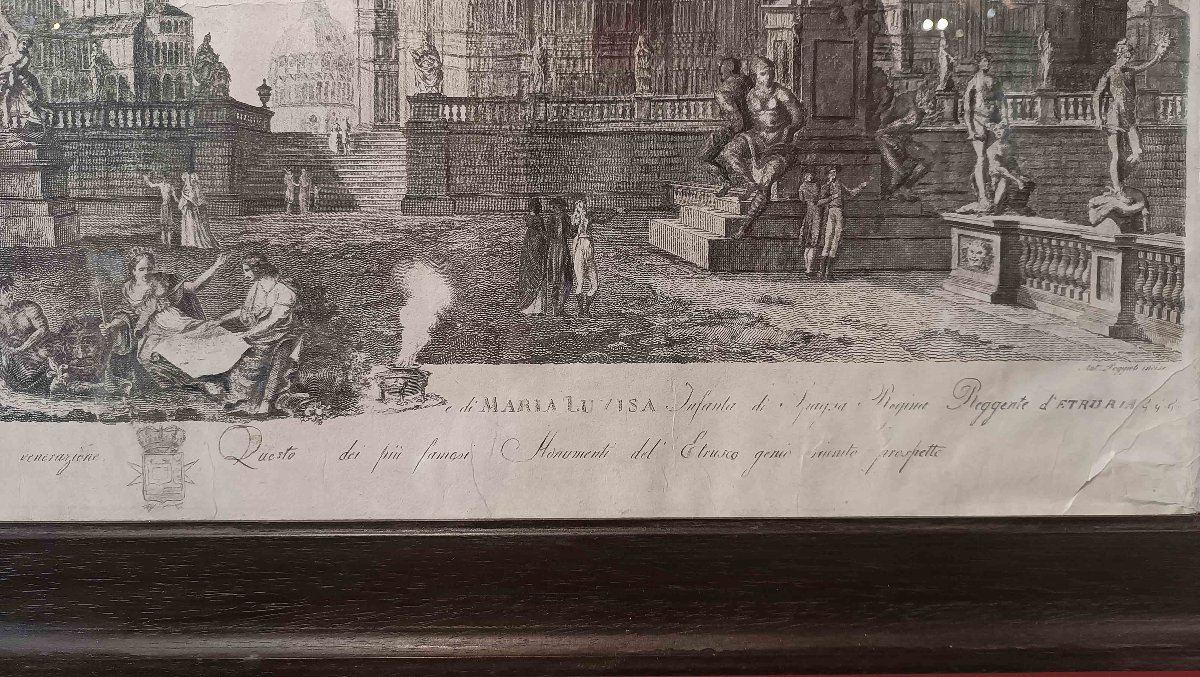 Ant. Poggiali incise
e di MARIA LUVISA Infanta di Spagna Regina Reggente d'ETRURIA
venerazione. Questo dei più famosi Monumenti del' Etrusco genio riunito prospetto